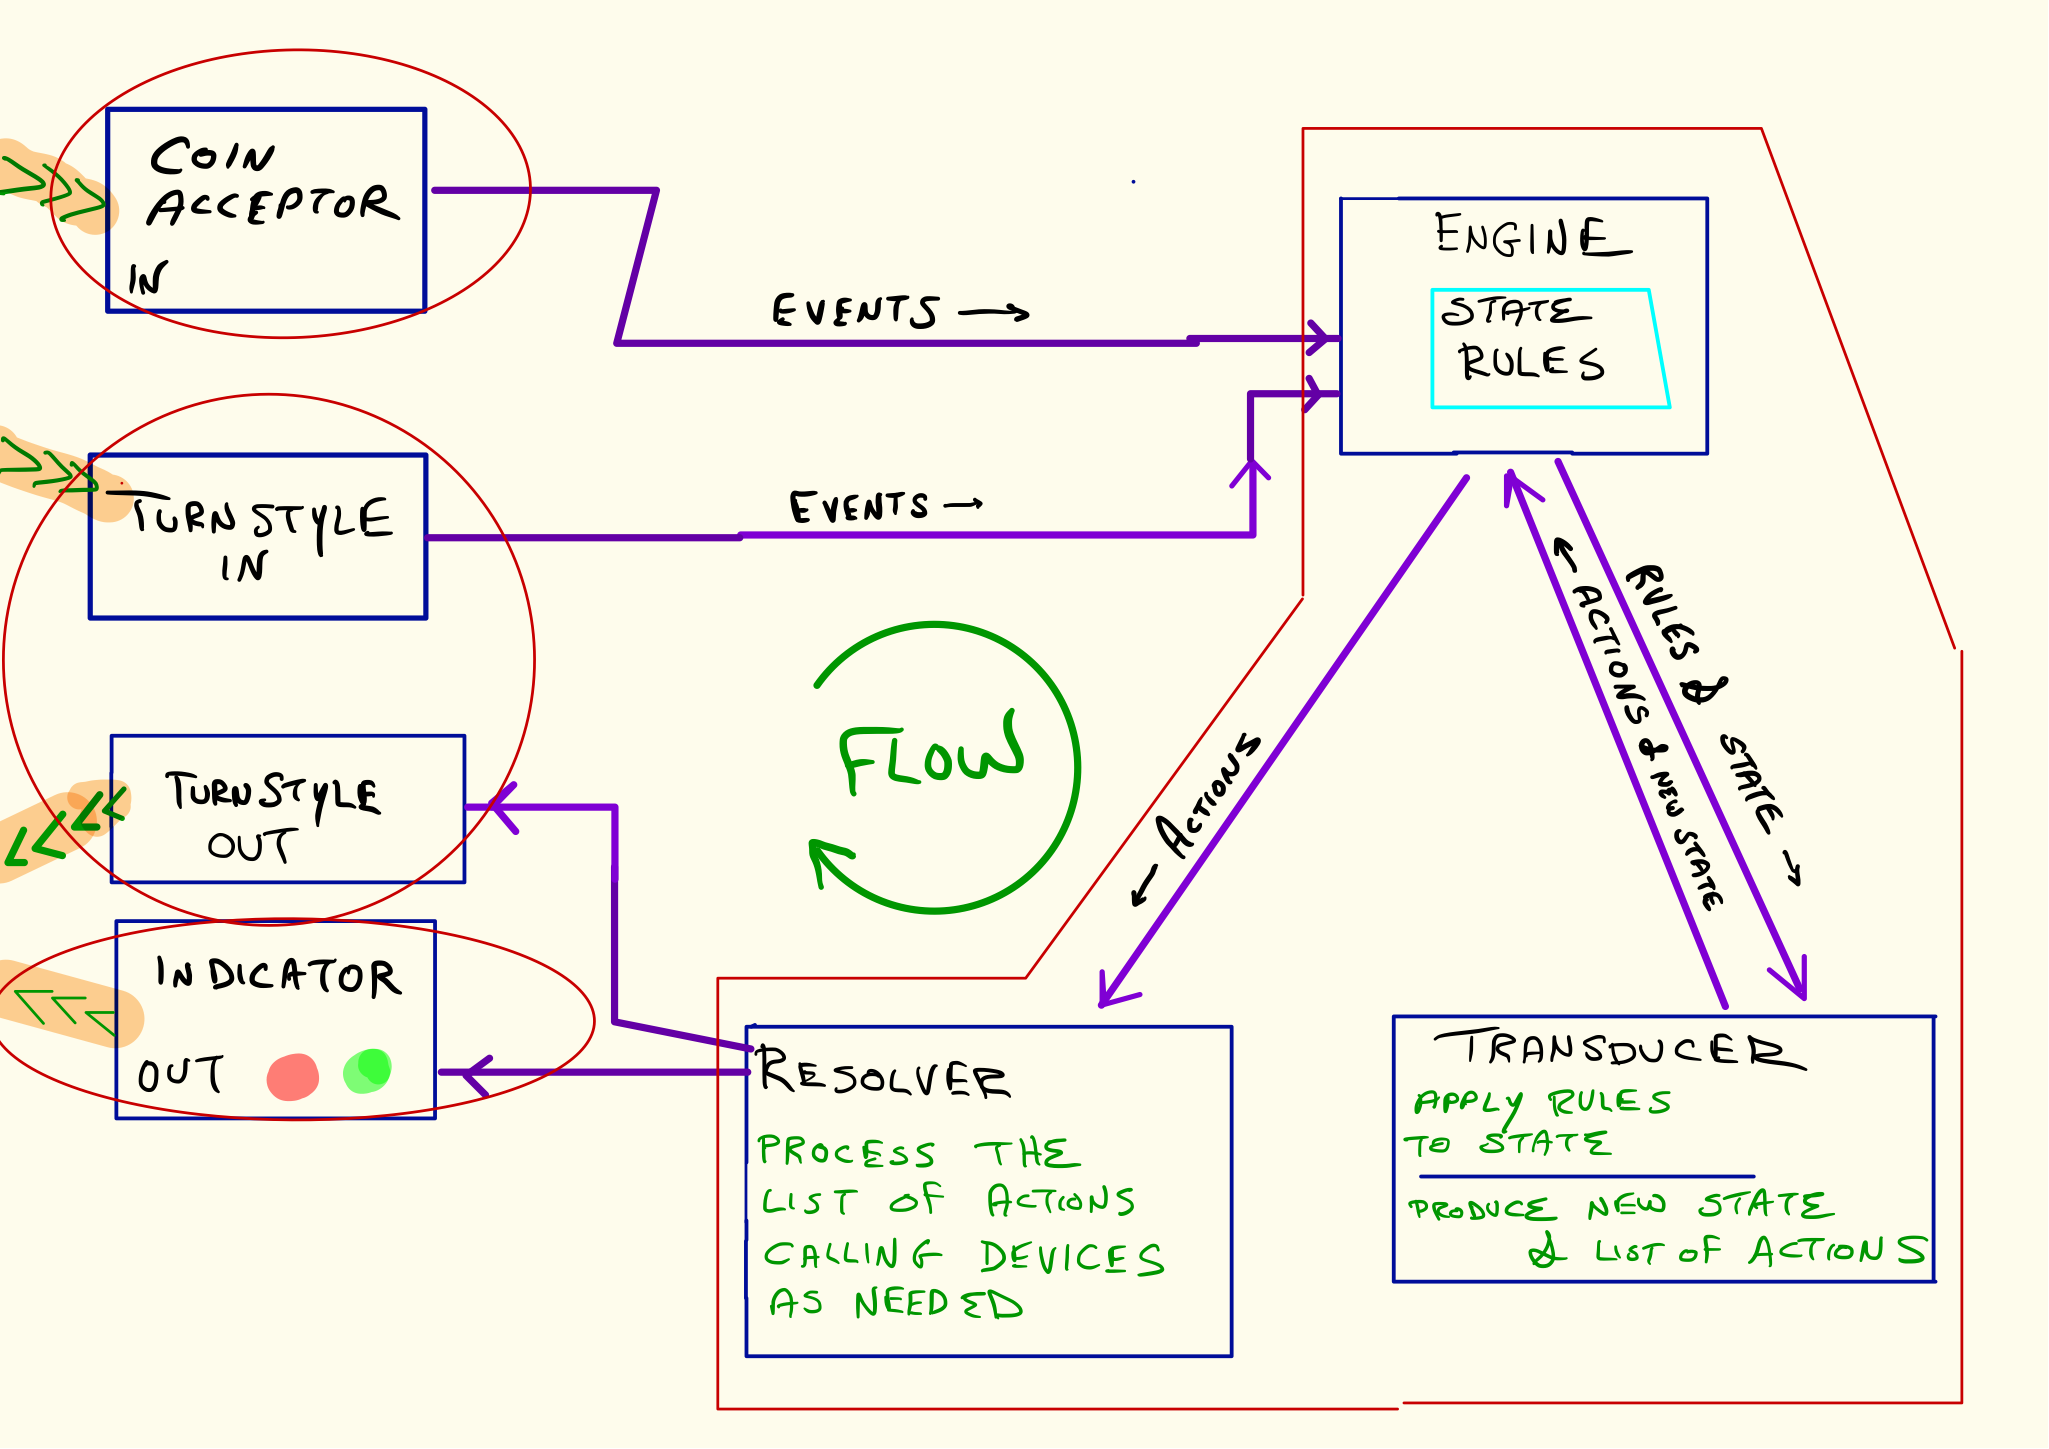 COIN
ACCEPTOR
IN
EVENTS →
ENGINE
STATE
RULES
TURNSTYLE
IN
EVENTS →
FLOW
← ACTIONS
← ACTIONS & NEW STATE
RULES & STATE →
TURNSTYLE
OUT
INDICATOR
OUT
RESOLVER
PROCESS THE
LIST OF ACTIONS
CALLING DEVICES
AS NEEDED
TRANSDUCER
APPLY RULES
TO STATE
PRODUCE NEW STATE
& LIST OF ACTIONS